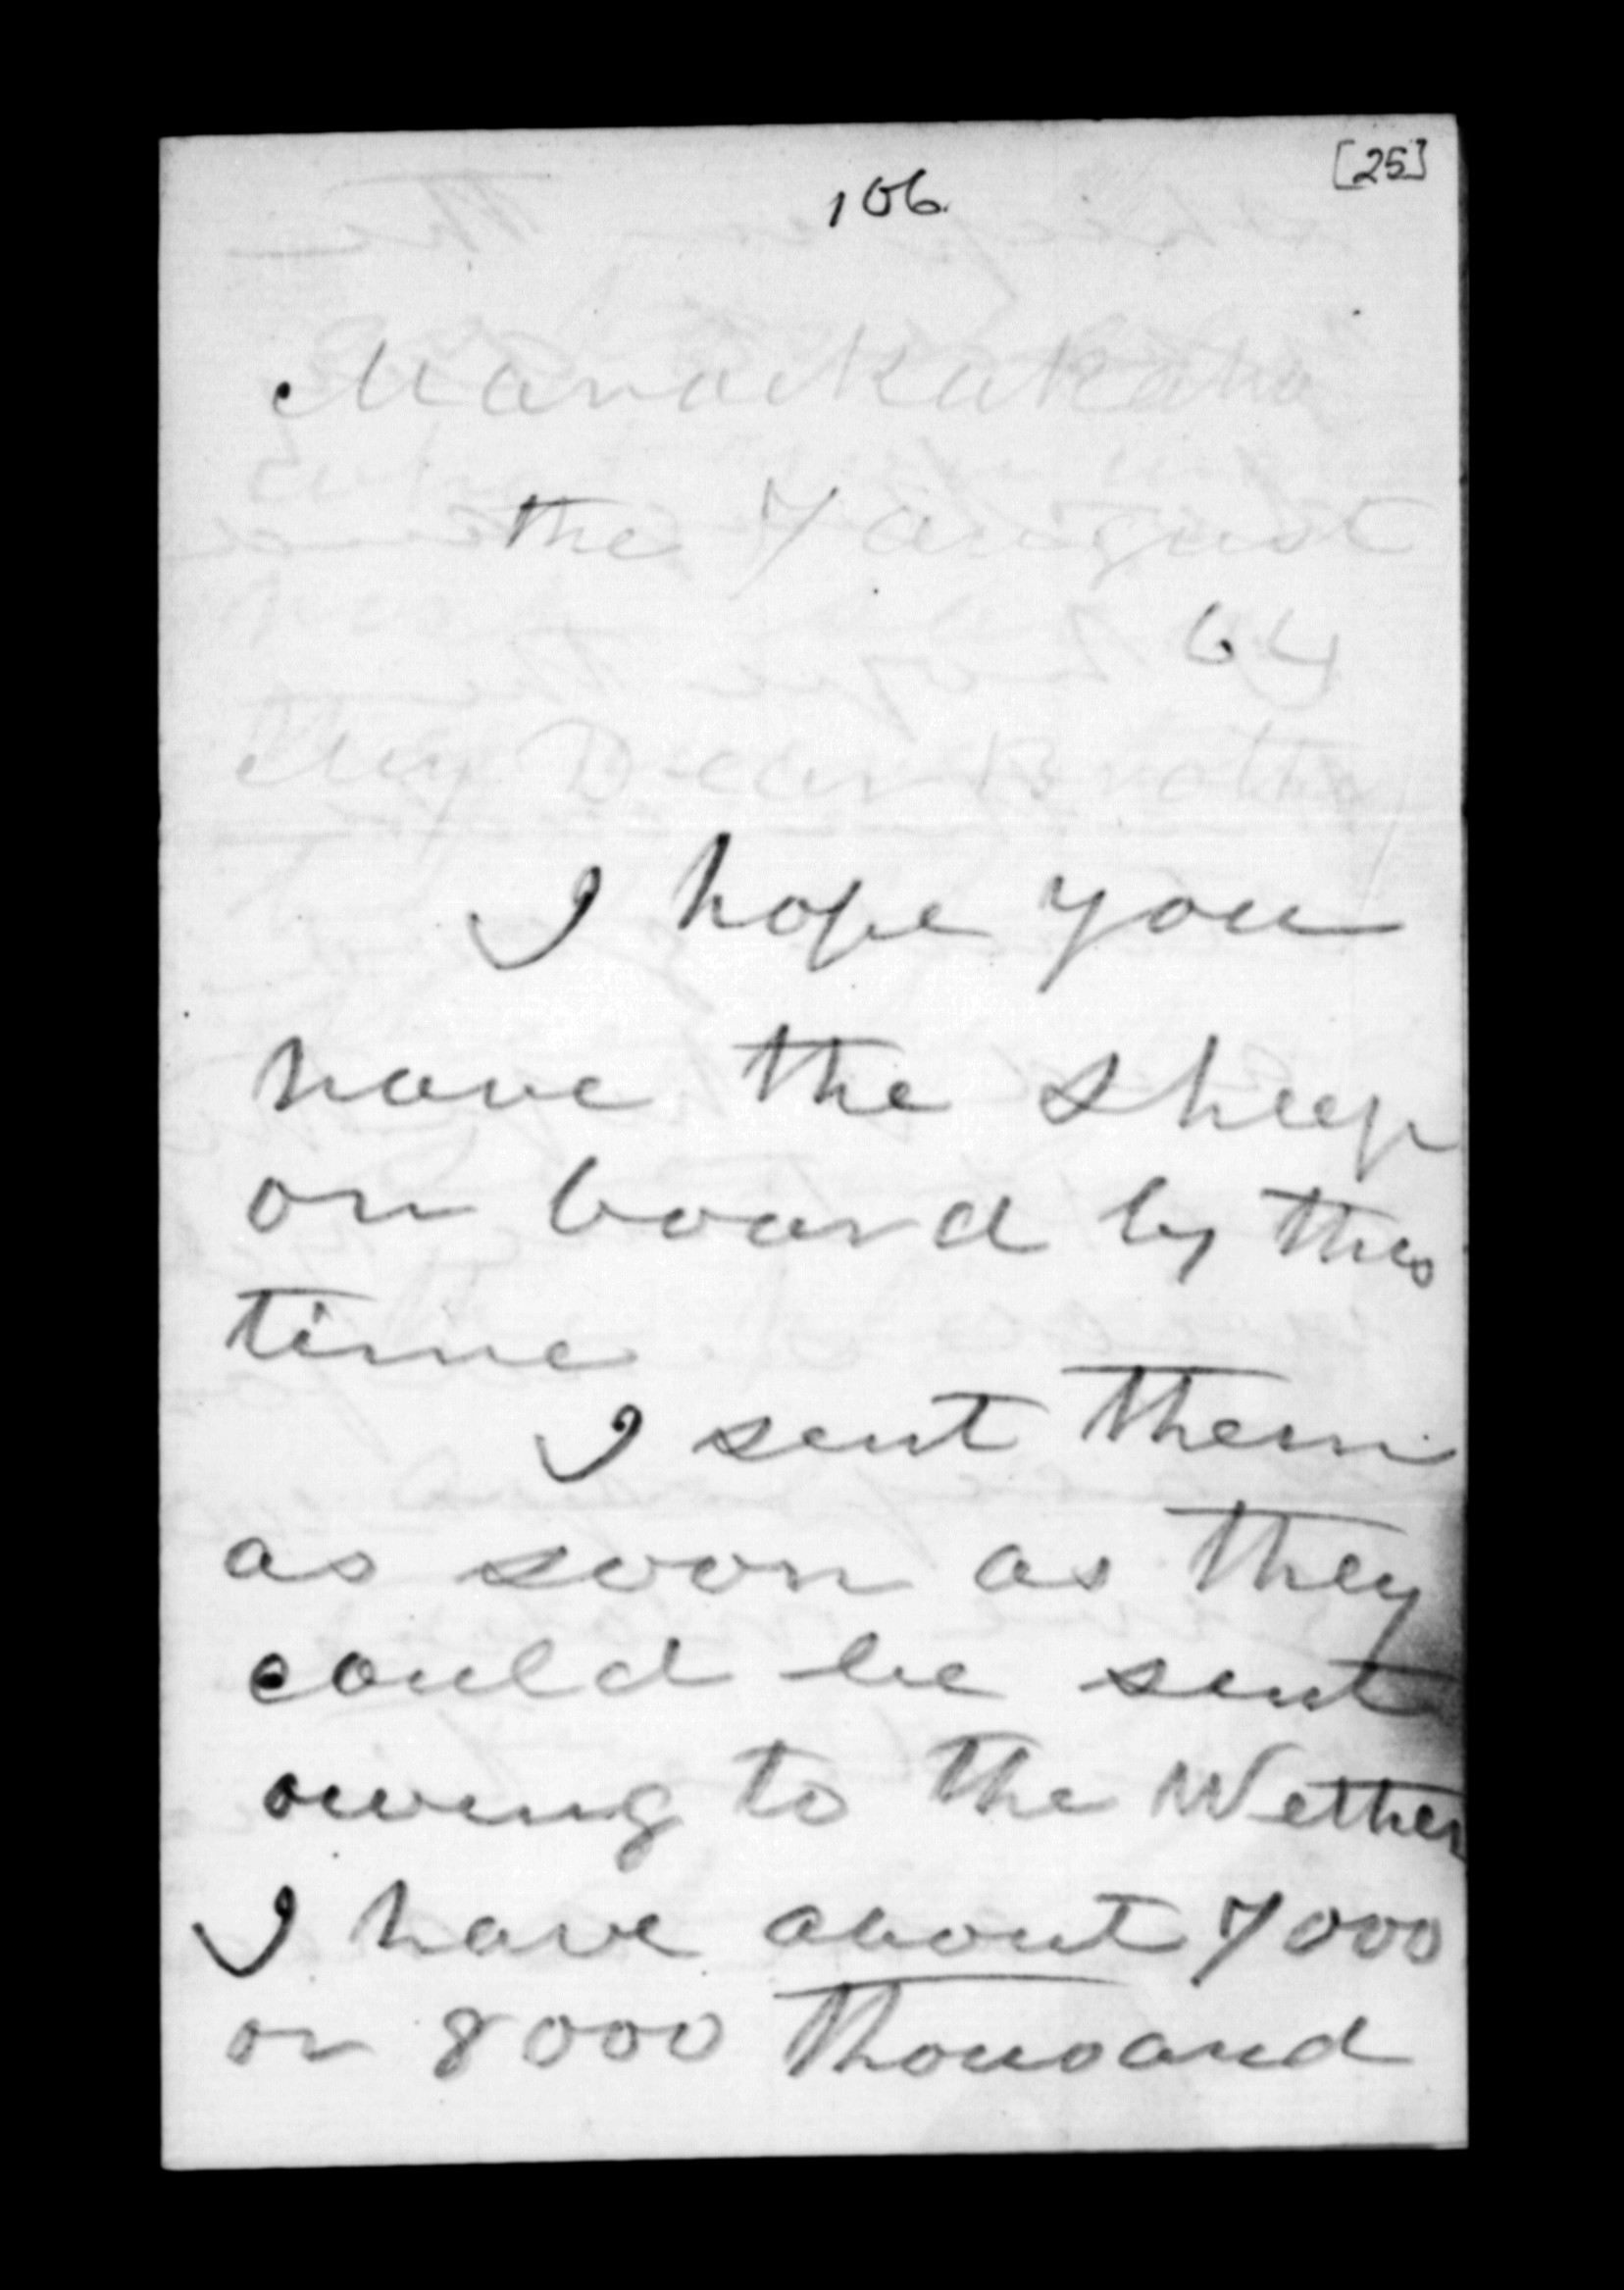 [25]
106
the 7 august
64
My Dear Brother
I hope you
have the sheep
on board by this
time
I sent them
as soon as they
could be sent
owing to the Wether
I have about 7000
or 8000 Thousand